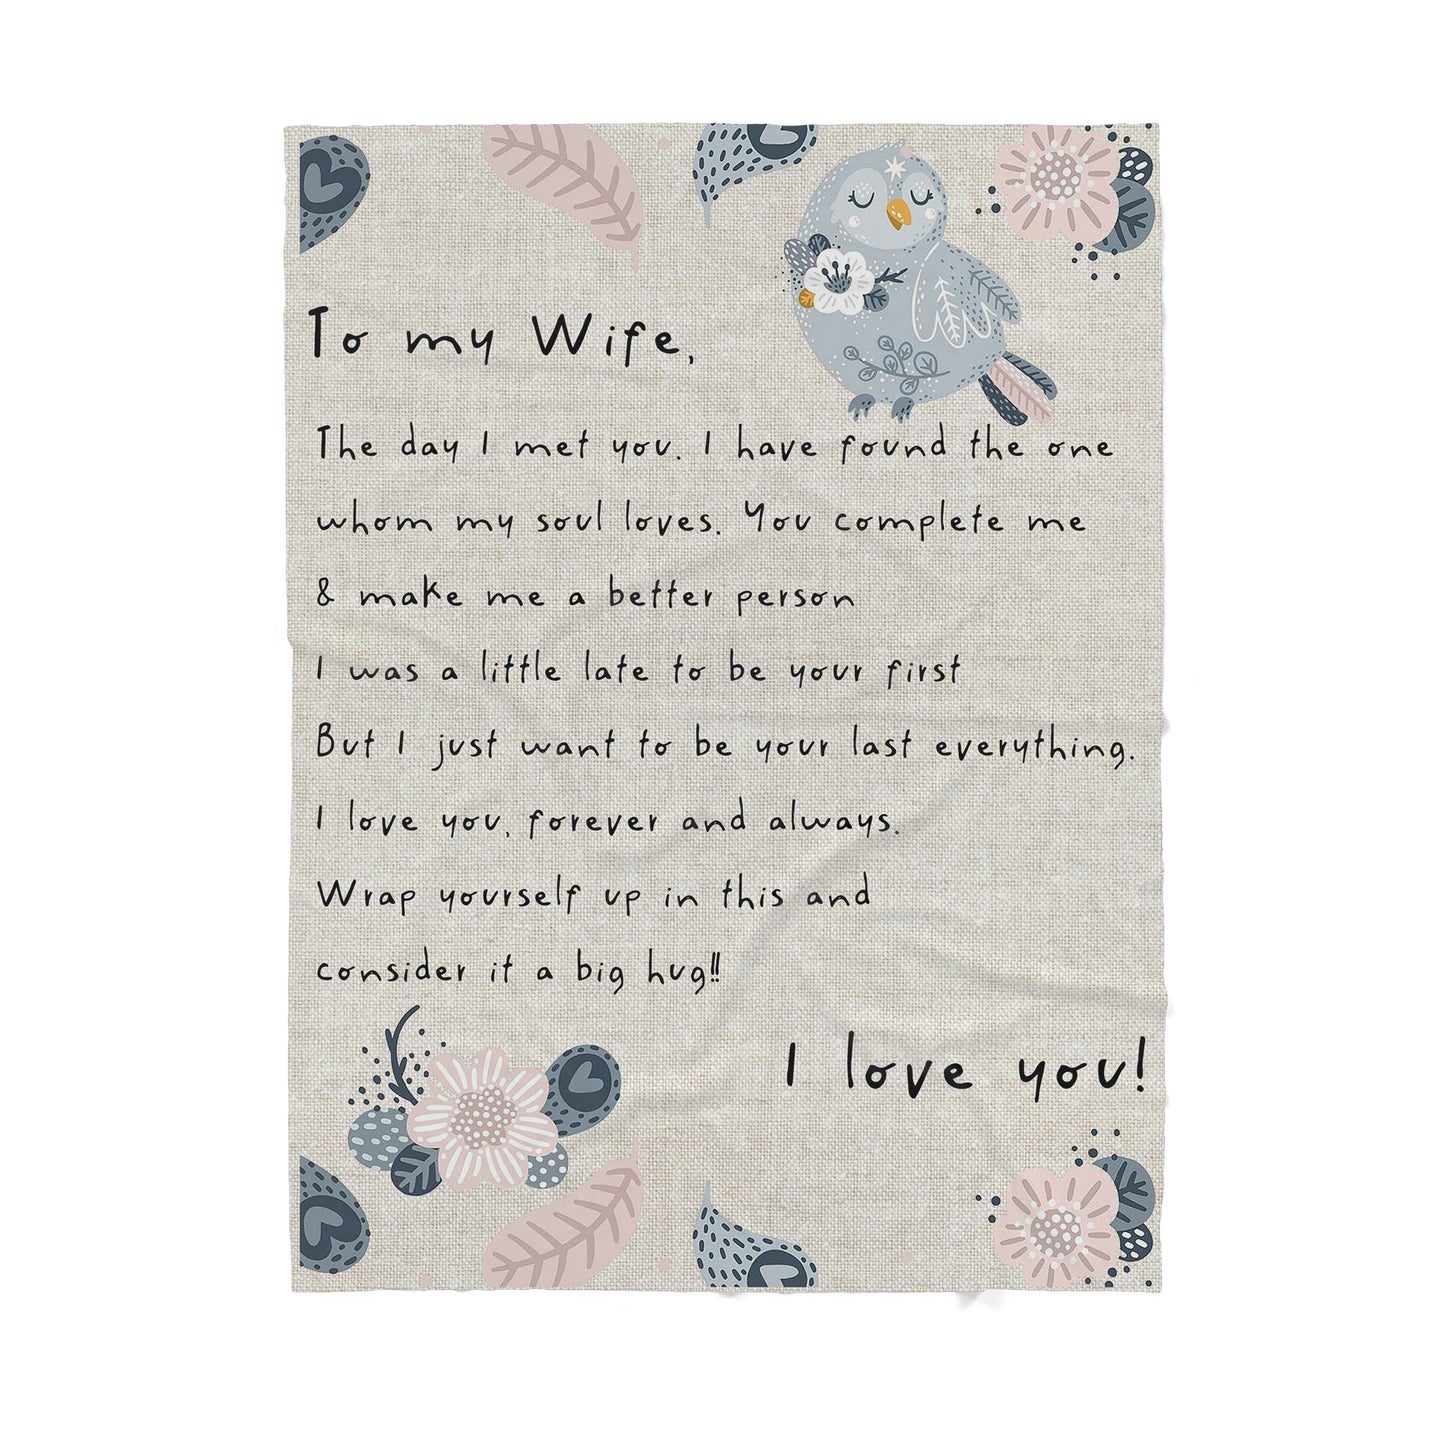 To my Wife,
The day I met you. I have found the one
whom my soul loves. You complete me
& make me a better person
I was a little late to be your first
But I just want to be your last everything.
I love you, forever and always.
Wrap yourself up in this and
consider it a big hug!!
I love you!